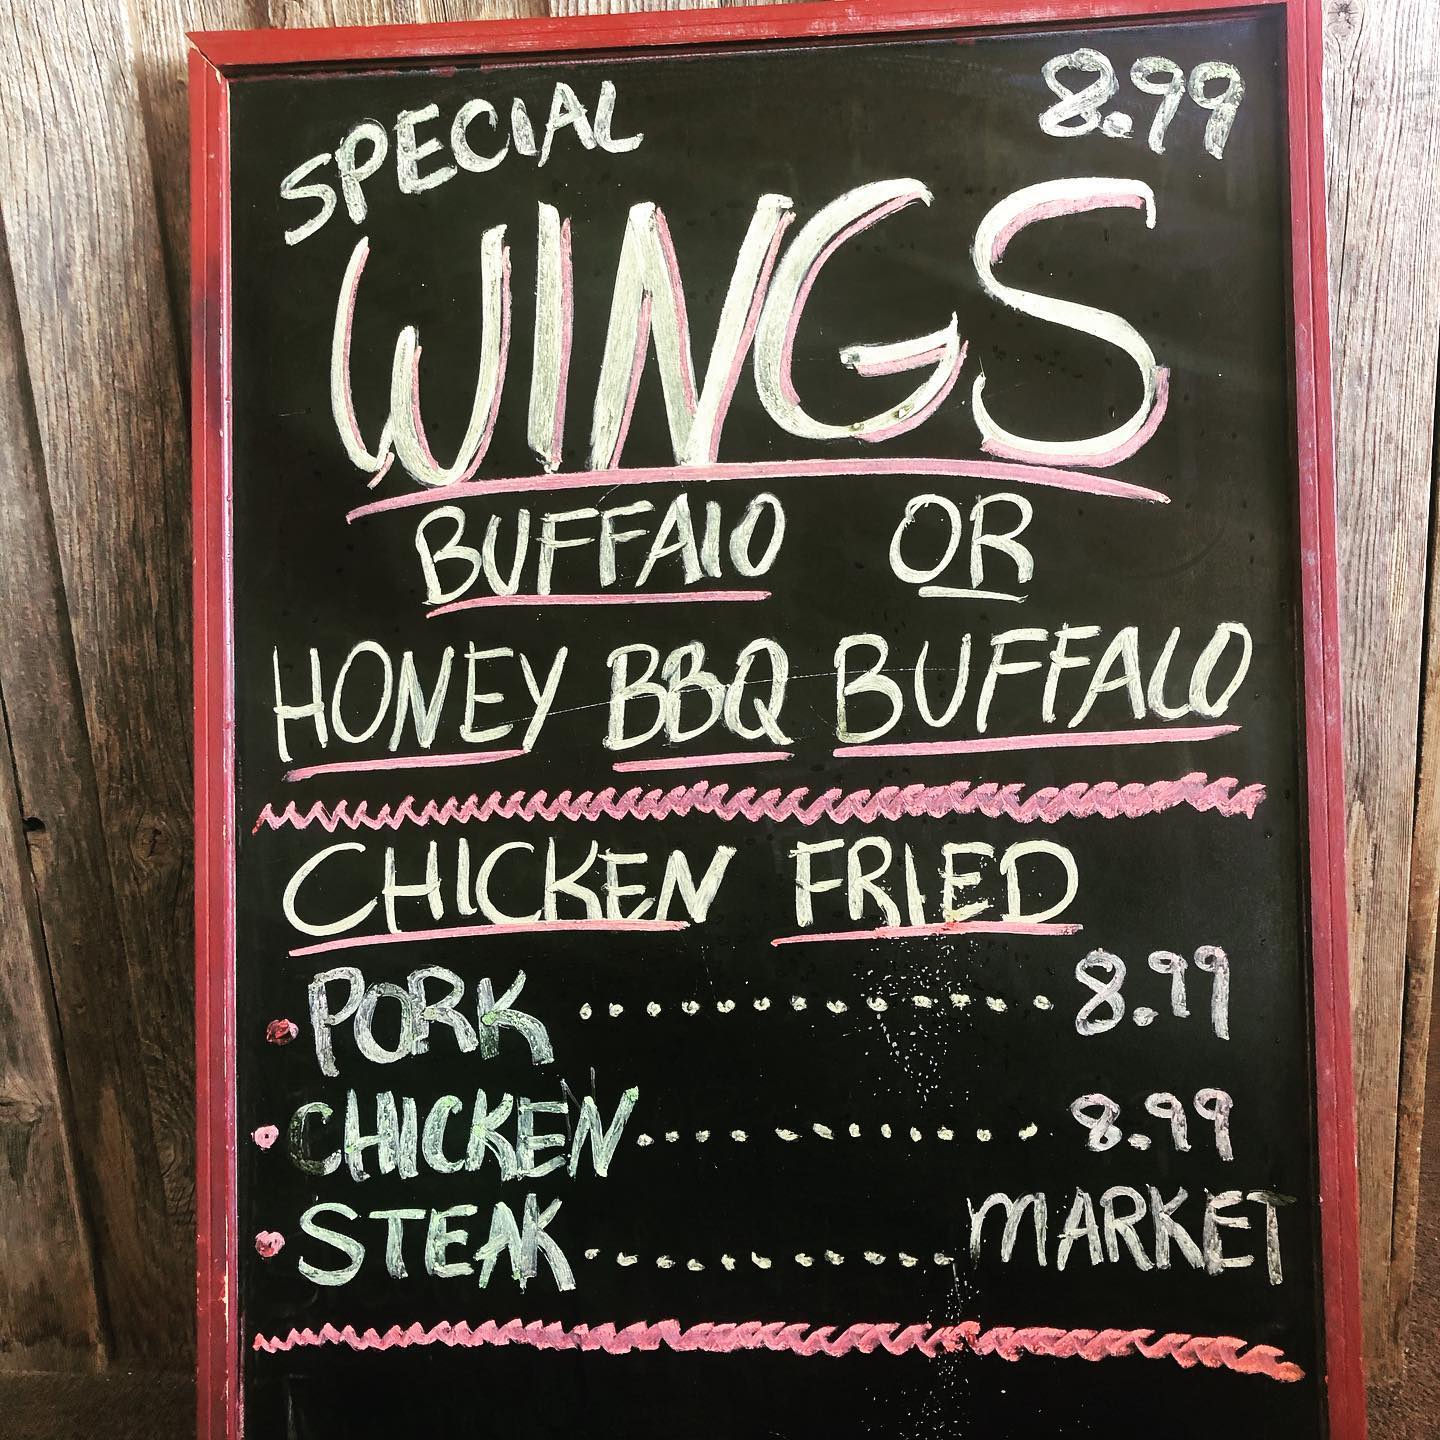 SPECIAL 8.99
WINGS
BUFFALO OR
HONEY BBQ BUFFALO
CHICKEN FRIED
• PORK ............. 8.99
• CHICKEN ............ 8.99
• STEAK ........... MARKET